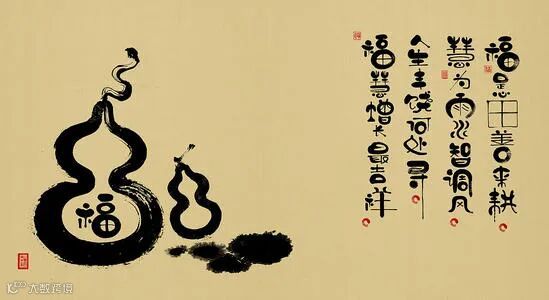 福是田善来耕
慧为雨水智调风
人生丰饶何处寻
福慧增长最吉祥
福
大数跨境